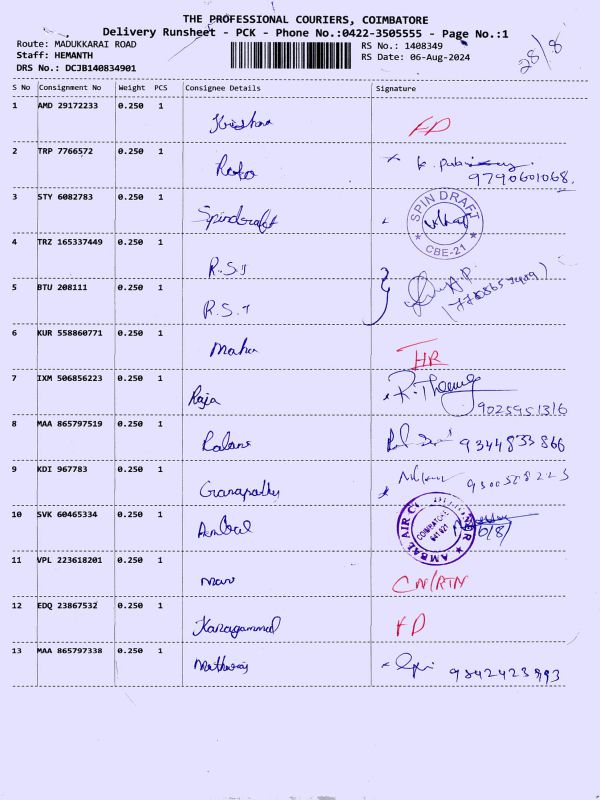 THE PROFESSIONAL COURIERS, COIMBATORE
Delivery Runsheet - PCK - Phone No.:0422-3505555 - Page No.:1
Route: MADUKKARAI ROAD RS No.: 1408349
Staff: HEMANTH RS Date: 06-Aug-2024
DRS No.: DCJB140834901
28/8
S No Consignment No Weight PCS Consignee Details Signature
1 AMD 29172233 0.250 1 Krishna
2 TRP 7766572 0.250 1
9790601068.
3 STY 6082783 0.250 1 Spindraft SPIN DRAFT CBE-21
4 TRZ 165337449 0.250 1 R.S.T
5 BTU 208111 0.250 1 R.S.T
6 KUR 558860771 0.250 1 Maha
7 IXM 506856223 0.250 1 Raja
9025951316
8 MAA 865797519 0.250 1 9344833866
9 KDI 967783 0.250 1 Ganapathy
10 SVK 60465334 0.250 1 COIMBATORE
11 VPL 223618201 0.250 1 CN/RTN
12 EDQ 23867532 0.250 1 Kanagammal
13 MAA 865797338 0.250 1